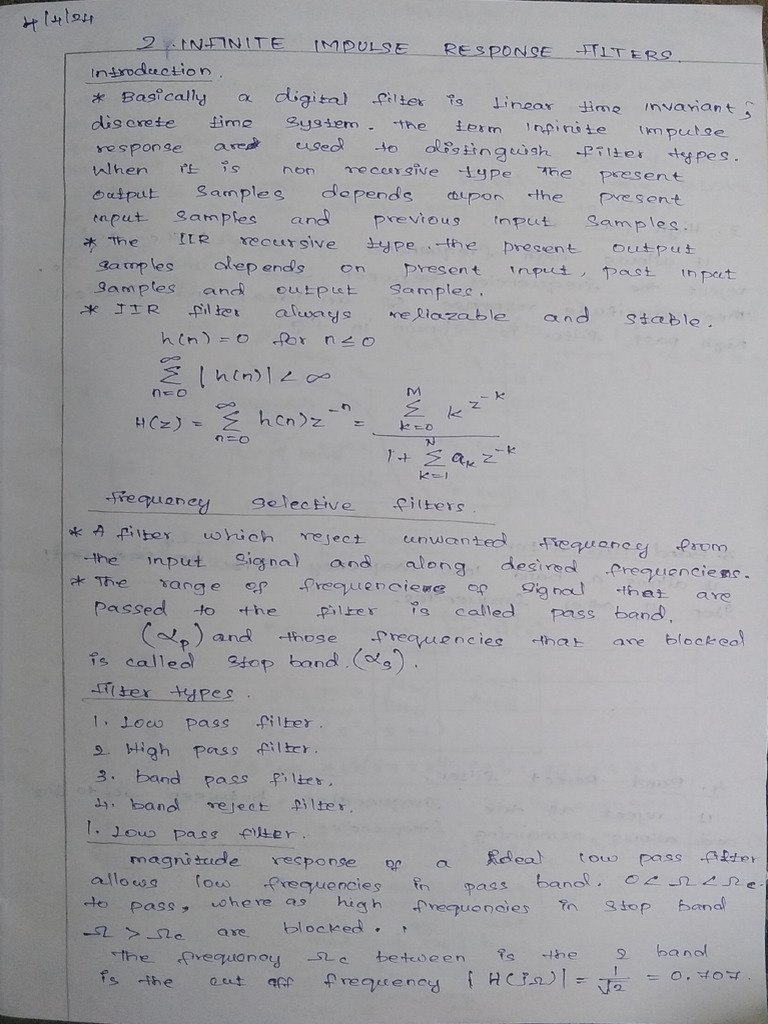 4/4/24
2. INFINITE IMPULSE RESPONSE FILTERS.
Introduction.
* Basically a digital filter is linear time invariant;
discrete time system. the term infinite impulse
response are used to distinguish filter types.
When it is non recursive type the present
output samples depends upon the present
input samples and previous input samples.
* The IIR recursive type. the present output
samples depends on present input, past input
samples and output samples.
* IIR filter always reliazable and stable.
h(n) = 0 for n ≤ 0
∞ Σ n=0 |h(n)| < ∞
H(z) = ∞ Σ n=0 h(n) z^-n = M Σ k=0 k z^-k / 1 + N Σ k=1 a_k z^-k
frequency selective filters.
* A filter which reject unwanted frequency from
the input signal and along desired frequencies.
* The range of frequencies of signal that are
passed to the filter is called pass band.
(αp) and those frequencies that are blocked
is called stop band. (αs).
filter types.
1. Low pass filter.
2 High pass filter.
3. band pass filter.
4. band reject filter.
1. Low pass filter.
magnitude response of a ideal low pass filter
allows low frequencies in pass band. 0 < Ω < Ωc.
to pass, where as high frequencies in stop band
Ω > Ωc are blocked.
The frequency Ωc between is the 2 band
is the cut off frequency |H(jΩ)| = 1/√2 = 0.707.